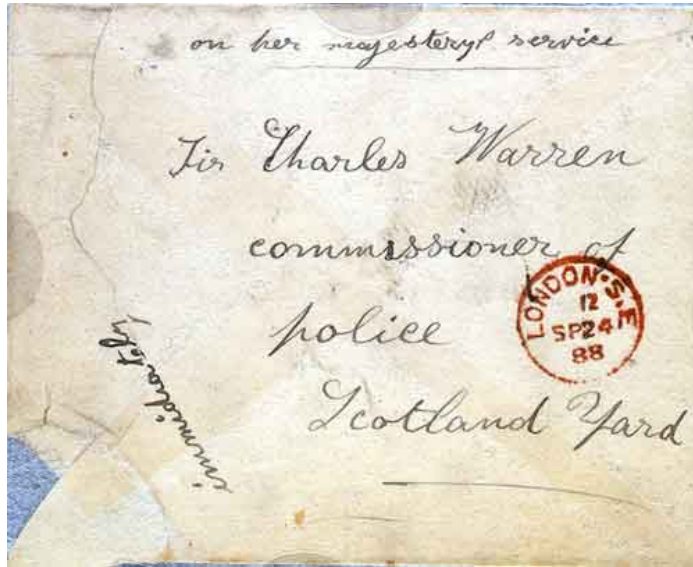 on her majesterys service
Sir Charles Warren
commissioner of
police
Scotland Yard
immediately
LONDON·S.E
12
SP24
88